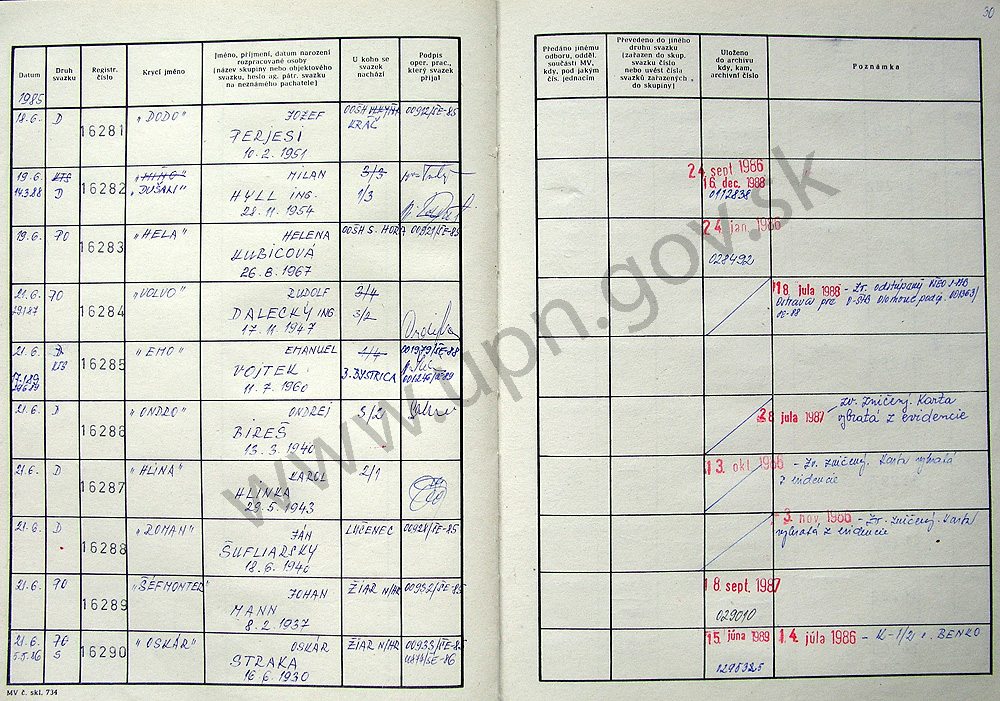 30
Datum
Druh svazku
Registr. číslo
Krycí jméno
Jméno, příjmení, datum narození
rozpracované osoby
(název skupiny nebo objektového
svazku, heslo ag. pátr. svazku
na neznámého pachatele)
U koho se
svazek
nachází
Podpis
oper. prac.,
který svazek
přijal
Předáno jinému
odboru, odděl.
součásti MV,
kdy, pod jakým
čís. jednacím
Převedeno do jiného
druhu svazku
(zařazen do skup.
svazku číslo
nebo uvést čísla
svazků zařazených
do skupiny)
Uloženo
do archivu
kdy, kam,
archivní číslo
Poznámka
1985
18.6. D 16281 „DODO" JOZEF OOŠH 00912/ŠE-85
PERJESI KRÁČ
10.2.1951
19.6. 16282 MILAN 3/3 24. sept 1986
14.3.88 D „DUŠAN" HYLL ING. 1/3 16. dec. 1988
28.11.1954 0112838
19.6. 70 16283 „HELA" HELENA OOŠH S. HORA 00921/ŠE-85 24. jan. 1986
KUBICOVÁ 028492
26.8.1967
21.6. 70 16284 „VOLVO" RUDOLF 3/4 18. júla 1988 - Zv. odstúpený
DALECKÝ ING 3/2 Ostrava pre Olomouc
17.11.1947
21.6. D 16285 „EMO" EMANUEL 4/4 001979/ŠE-88
KTS VOJTEK B.BYSTRICA
11.7.1960
21.6. D 16286 „ONDRO" ONDREJ 3/2 28. júla 1987 - Zv. zničený. Karta
BIREŠ vybratá z evidencie
13.3.1940
21.6. D 16287 „HLINA" KAROL 2/1 13. okt. 1986 - Zv. zničený. Karta vybratá
HLINKA z evidencie
29.5.1943
21.6. D 16288 „ROMAN" JÁN LUČENEC 00928/ŠE-85 3. nov. 1986 - Zv. zničený. Karta
ŠUFLIARSKY vybratá z evidencie
18.6.1940
21.6. 70 16289 „ŠÉFMONTER" JOHAN ŽIAR N/HR 00932/ŠE-85 18. sept. 1987
MANN 029010
8.2.1937
21.6. 70 16290 „OSKÁR" OSKÁR ŽIAR N/HR 00933/ŠE-85 15. júna 1989 14. júla 1986 - K-1/2 s. BENKO
5.5.86 S STRAKA
16.6.1930
MV č. skl. 734
www.upn.gov.sk